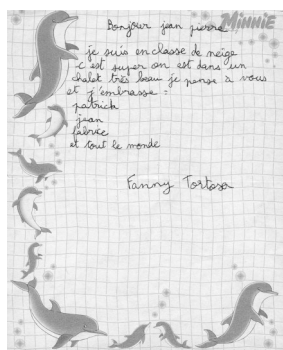 Bonjour jean pierre !
MiNNiE
je suis en classe de neige
c est super on est dans un
chalet très beau je pense à vous
et j'embrasse :
patrick
jean
fabrice
et tout le monde
Fanny Tortosa